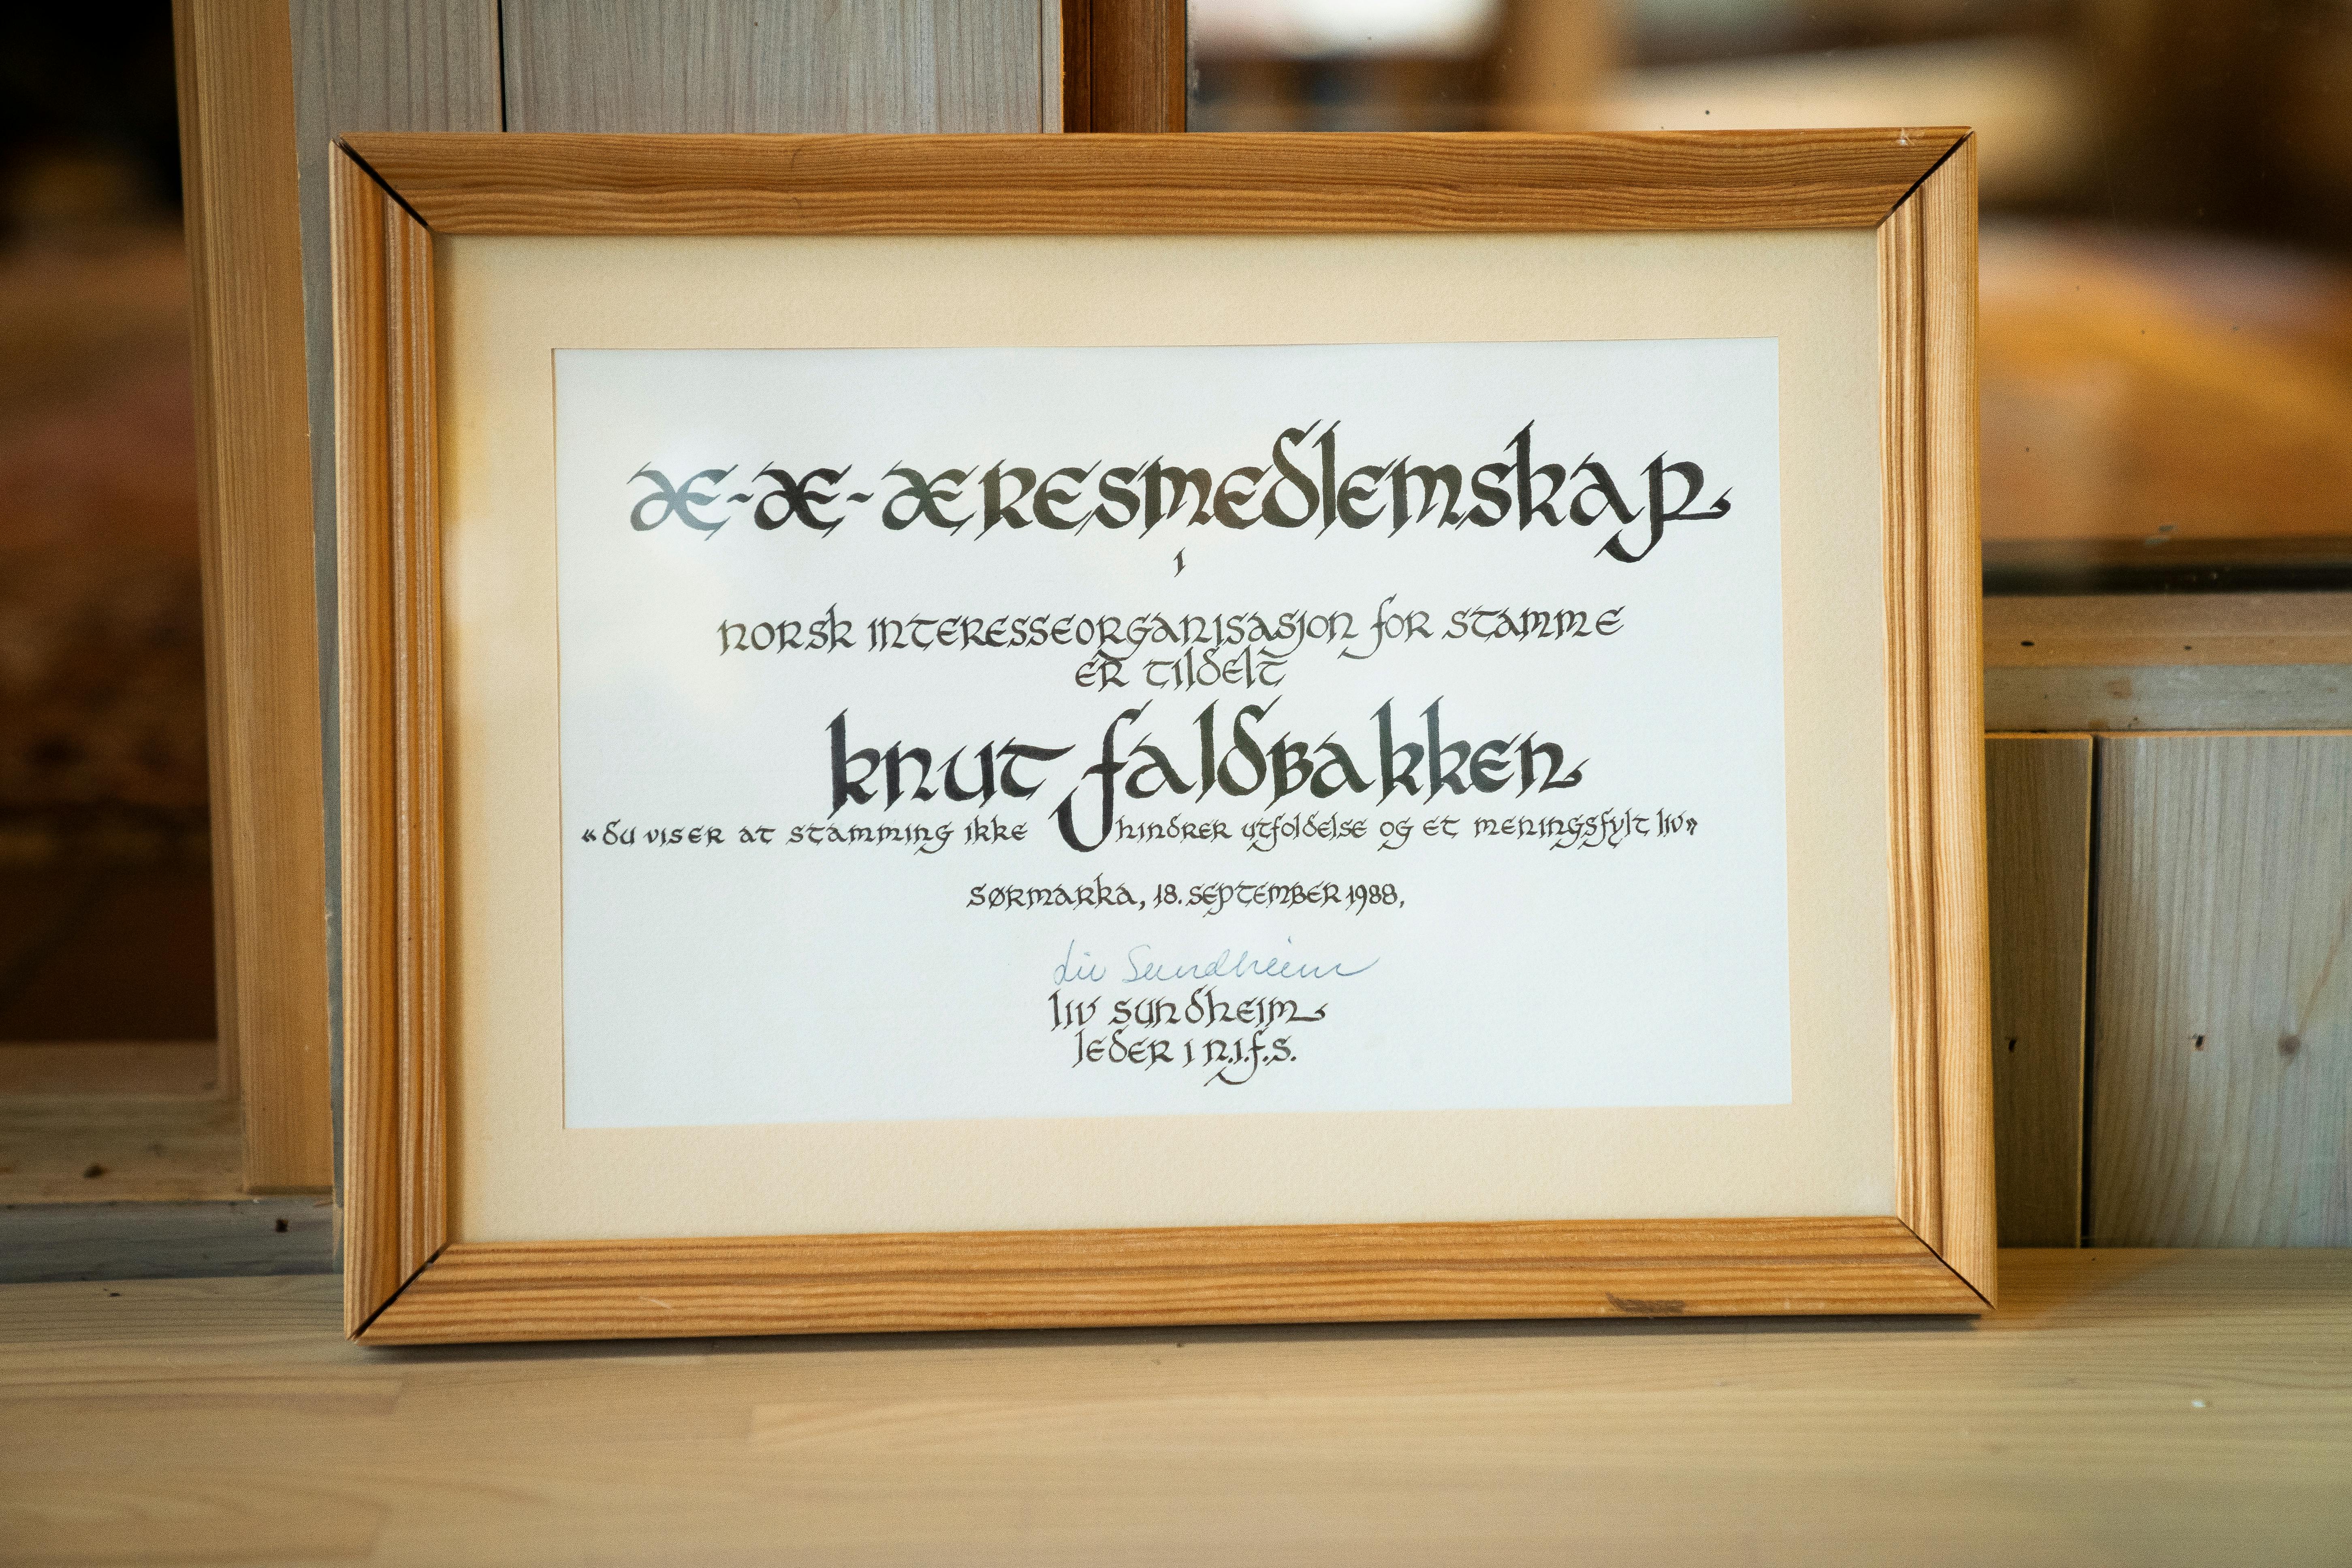 æ-æ-æresmedlemskap
i
norsk interesseorganisasjon for stamme
er tildelt
knut faldbakken
«du viser at stamming ikke hindrer utfoldelse og et meningsfylt liv»
sørmarka, 18. september 1988,
Liv Sundheim
liv sundheim
leder i n.i.f.s.